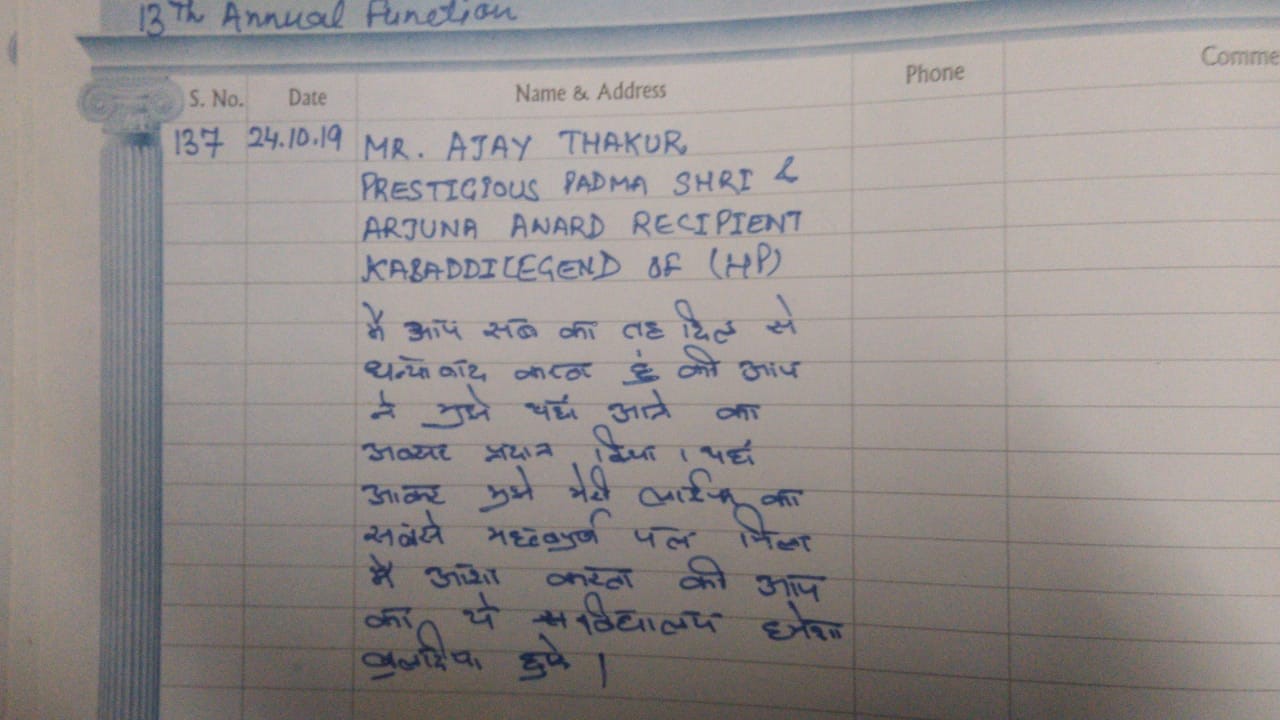 13Th Annual Function
S. No. Date Name & Address Phone Comme
137 24.10.19 MR. AJAY THAKUR,
PRESTIGIOUS PADMA SHRI &
ARJUNA AWARD RECIPIENT
KABADDI LEGEND OF (HP)
मैं आप सब का तह दिल से
धन्यावाद करता हूं की आप
ने मुझे यहां आने का
अवसर प्रदान किया । यहां
आकर मुझे मेरी लाईफ का
सबसे महत्वपूर्ण पल मिला
मैं आशा करता की आप
का ये विद्यालय हमेशा
बुलंदिया छुये ।